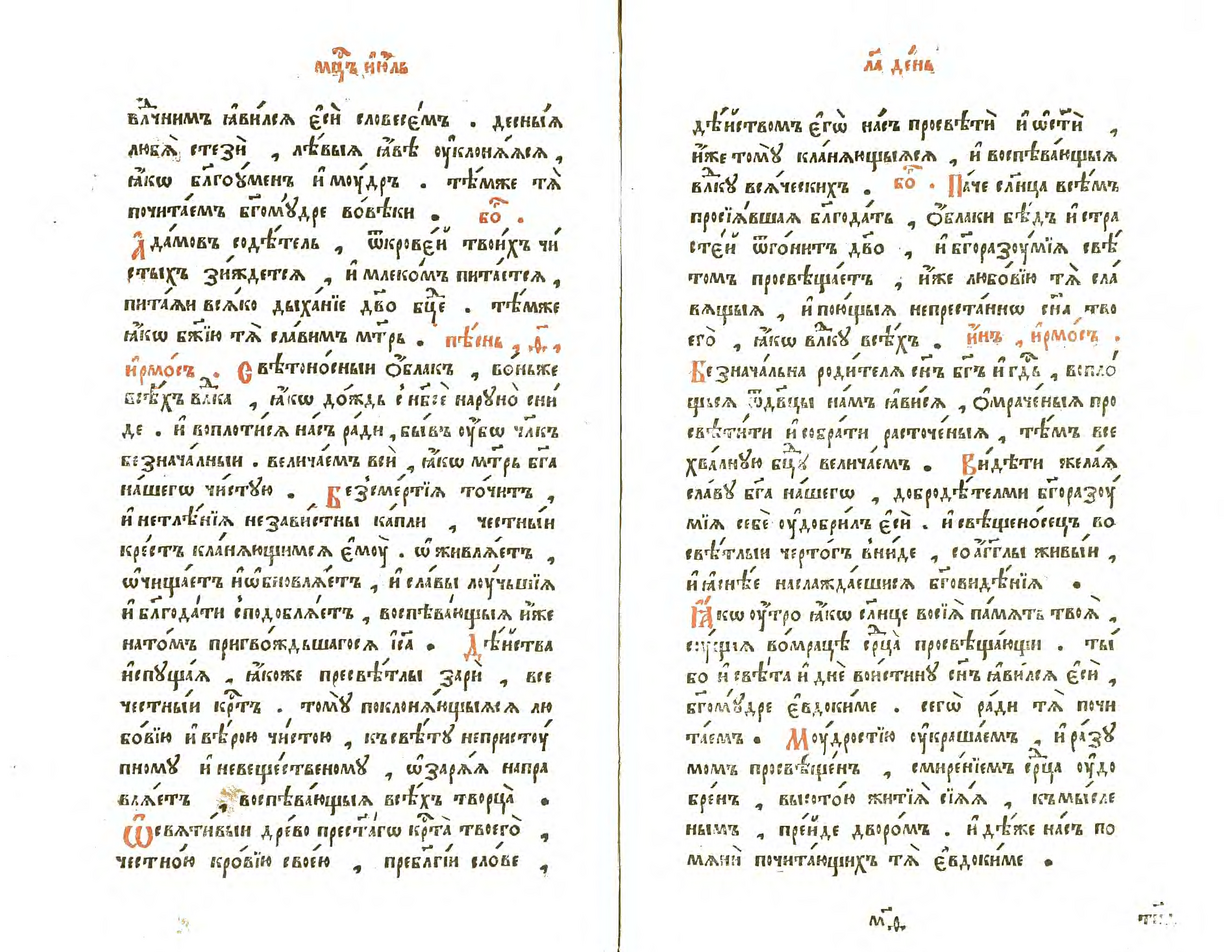 мц҃ъ і҆ю́ль
вл҃чнимъ ꙗ҆ви́лсѧ є҆сѝ словесе́мъ . десны́ѧ
любѧ̀ стезѝ , лѣ́выѧ ꙗ҆́вѣ ѹ҆клонѧ́ѧсѧ ,
ꙗ҆́кѡ бл҃гоу́менъ и҆ мѹ́дръ . тѣ́мже тѧ̀
почита́емъ бг҃ому́дре во́вѣки . бо҃ .
А҆да́мовъ содѣ́тель , ѿкрове́й твои́хъ чи́
стыхъ зи́ждетсѧ , и҆ млеко́мъ пита́етсѧ ,
пита́ѧи всѧ́ко дыха́нїе дв҃о бц҃е . тѣ́мже
ꙗ҆́кѡ бж҃їю тѧ̀ сла́вимъ мт҃рь . пѣ́снь , ѳ҃ ,
і҆рмо́съ . Свѣтоно́сныи ѻ҆́блакъ , во́ньже
всѣ́хъ влⷣка , ꙗ҆́кѡ до́ждь с нб҃сѐ наруно̀ сни́
де . и҆ воплоти́сѧ на́съ ра́ди , бы́въ ѹ҆́бѡ чл҃къ
безнача́лныи . велича́емъ всѝ , ꙗ҆́кѡ мт҃рь бг҃а
на́шегѡ чи́стую . Безсме́ртїѧ то́читъ ,
и҆ нетлѣ́нїѧ незави́стны ка́пли , че́стныи
кре́стъ кланѧ́ющимсѧ є҆мѹ̀ . ѡ҆живлѧ́етъ ,
ѡ҆чища́етъ и҆ѡ҆бновлѧ́етъ , и҆ сла́вы лѹ́чьшїѧ
и҆ бл҃года́ти сподоблѧ́етъ , воспѣва́ющыѧ и҆́же
нато́мъ пригво́ждьшагосѧ і҆с҃а . Дѣ́йства
и҆спуща́ѧ , ꙗ҆́коже пресвѣ́тлы зарѝ , все
че́стныи кр҃тъ . тому̀ поклонѧ́ющыѧсѧ лю
бо́вїю и҆ вѣ́рою чи́стою , къ свѣ́ту непристѹ́
пному и҆ невеще́ственому , ѡ҆зарѧ́ѧ напра
влѧ́етъ , воспѣва́ющыѧ всѣ́хъ творца̀ .
Ѡ҆свѧти́выи дре́во прест҃а́гѡ кр҃та̀ твоего̀ ,
честно́ю кро́вїю свое́ю , пребл҃гі́и сло́ве ,
л҃а де́нь
дѣ́йствомъ є҆гѡ̀ на́съ просвѣтѝ и҆ ѡ҆ст҃ѝ ,
и҆́же тому̀ кланѧ́ющыѧсѧ , и҆ воспѣва́ющыѧ
влⷣку всѧ́ческихъ . бо҃ . Па́че сл҃нца всѣ́мъ
просїѧ́вшаѧ бл҃года́ть , ѻ҆́блаки бѣ́дъ и҆ стра
сте́й ѿгонѝтъ дв҃о , и҆ бг҃оразѹ́мїѧ свѣ́
томъ просвѣща́етъ , и҆́же любо́вїю тѧ̀ сла́
вѧщыѧ , и҆ пою́щыѧ непреста́ннѡ сн҃а тво
его̀ , ꙗ҆́кѡ влⷣку всѣ́хъ . и҆́нъ , і҆рмо́съ .
Безнача́льна роди́телѧ сн҃ъ бг҃ъ и҆ гдⷭ҇ь , вопло
щьсѧ ѿдв҃цы на́мъ ꙗ҆ви́сѧ , ѻ҆мраче́ныѧ про
свѣти́ти и҆ собра́ти расточе́ныѧ , тѣ́мъ все
хва́лную бцⷣу велича́емъ . Ви́дѣти жела́ѧ
сла́ву бг҃а на́шегѡ , добродѣ́телми бг҃оразѹ́
мїѧ себѐ ѹ҆до́брилъ є҆сѝ . и҆ свѣщено́сецъ во
свѣ́тлыи черто́гъ вни́де , со а҆́гг҃лы живы́и ,
и҆ ꙗ҆́снѣе наслажда́ешисѧ бг҃овидѣ́нїѧ .
Ꙗ҆́кѡ ѹ҆́тро ꙗ҆́кѡ сл҃нце восїѧ̀ па́мѧть твоѧ̀ ,
су́щыѧ во́мрацѣ срⷣца̀ просвѣща́ющи . ты́
бо и҆ свѣ́та и҆ днѐ вои́стину сн҃ъ ꙗ҆ви́лсѧ є҆сѝ ,
бг҃ому́дре є҆вдоки́ме . сегѡ̀ ра́ди тѧ̀ почи
та́емъ . Мѹ́дростїю ѹ҆краша́емъ , и҆ ра́зу
момъ просвѣще́нъ , смире́нїемъ срⷣца ѹ҆до́
бре́нъ , высото́ю житїѧ̀ сїѧ́ѧ , къ мы́сле
нымъ , пре́йде дворо́мъ . и҆дѣ́же на́съ по
мѧнѝ почита́ющихъ тѧ̀ є҆вдоки́ме .
м҃ѳ